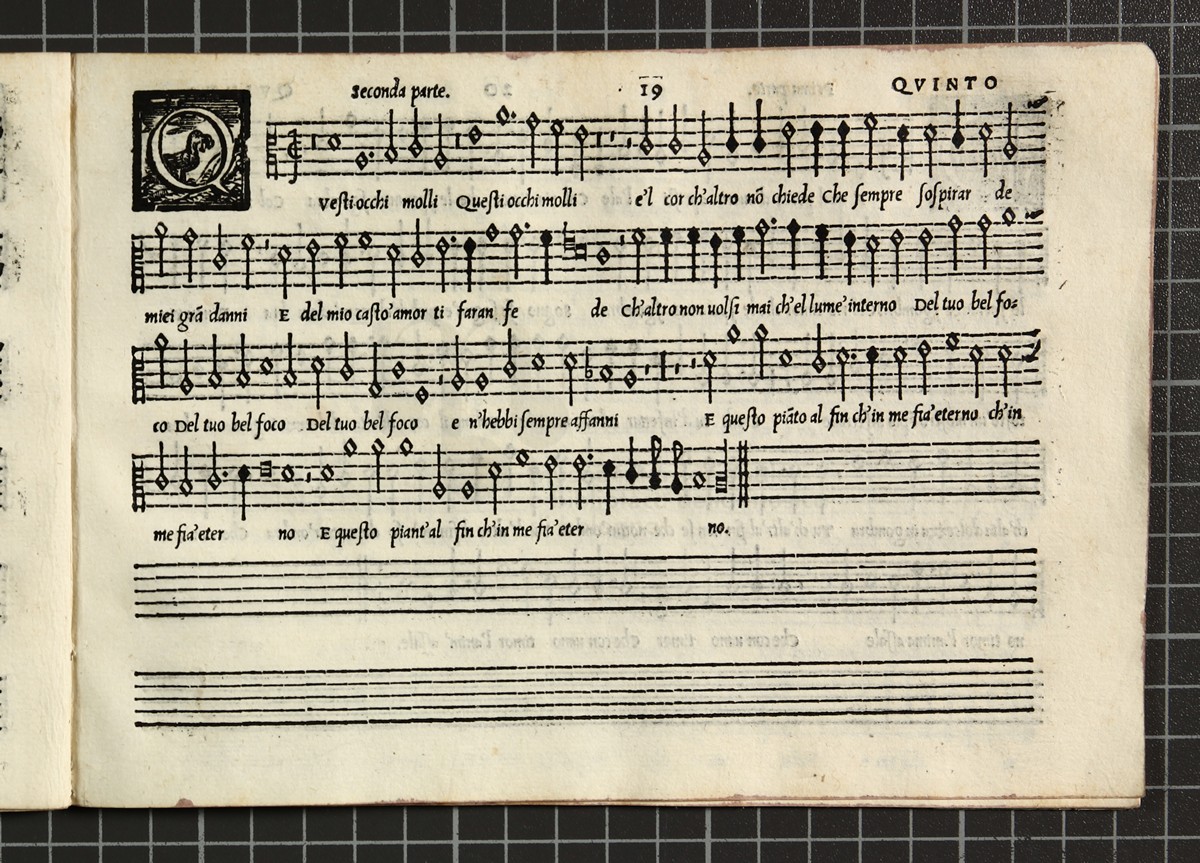 Seconda parte. 19 QVINTO
QVesti occhi molli Questi occhi molli e'l cor ch'altro nõ chiede Che sempre sospirar de
miei grã danni E del mio casto'amor ti faran fe de Ch'altro non uolsi mai ch'el lume'interno Del tuo bel fo-
co Del tuo bel foco Del tuo bel foco e n'hebbi sempre affanni E questo piãto al fin ch'in me fia'eterno ch'in
me fia'eter no E questo piant'al fin ch'in me fia'eter no.